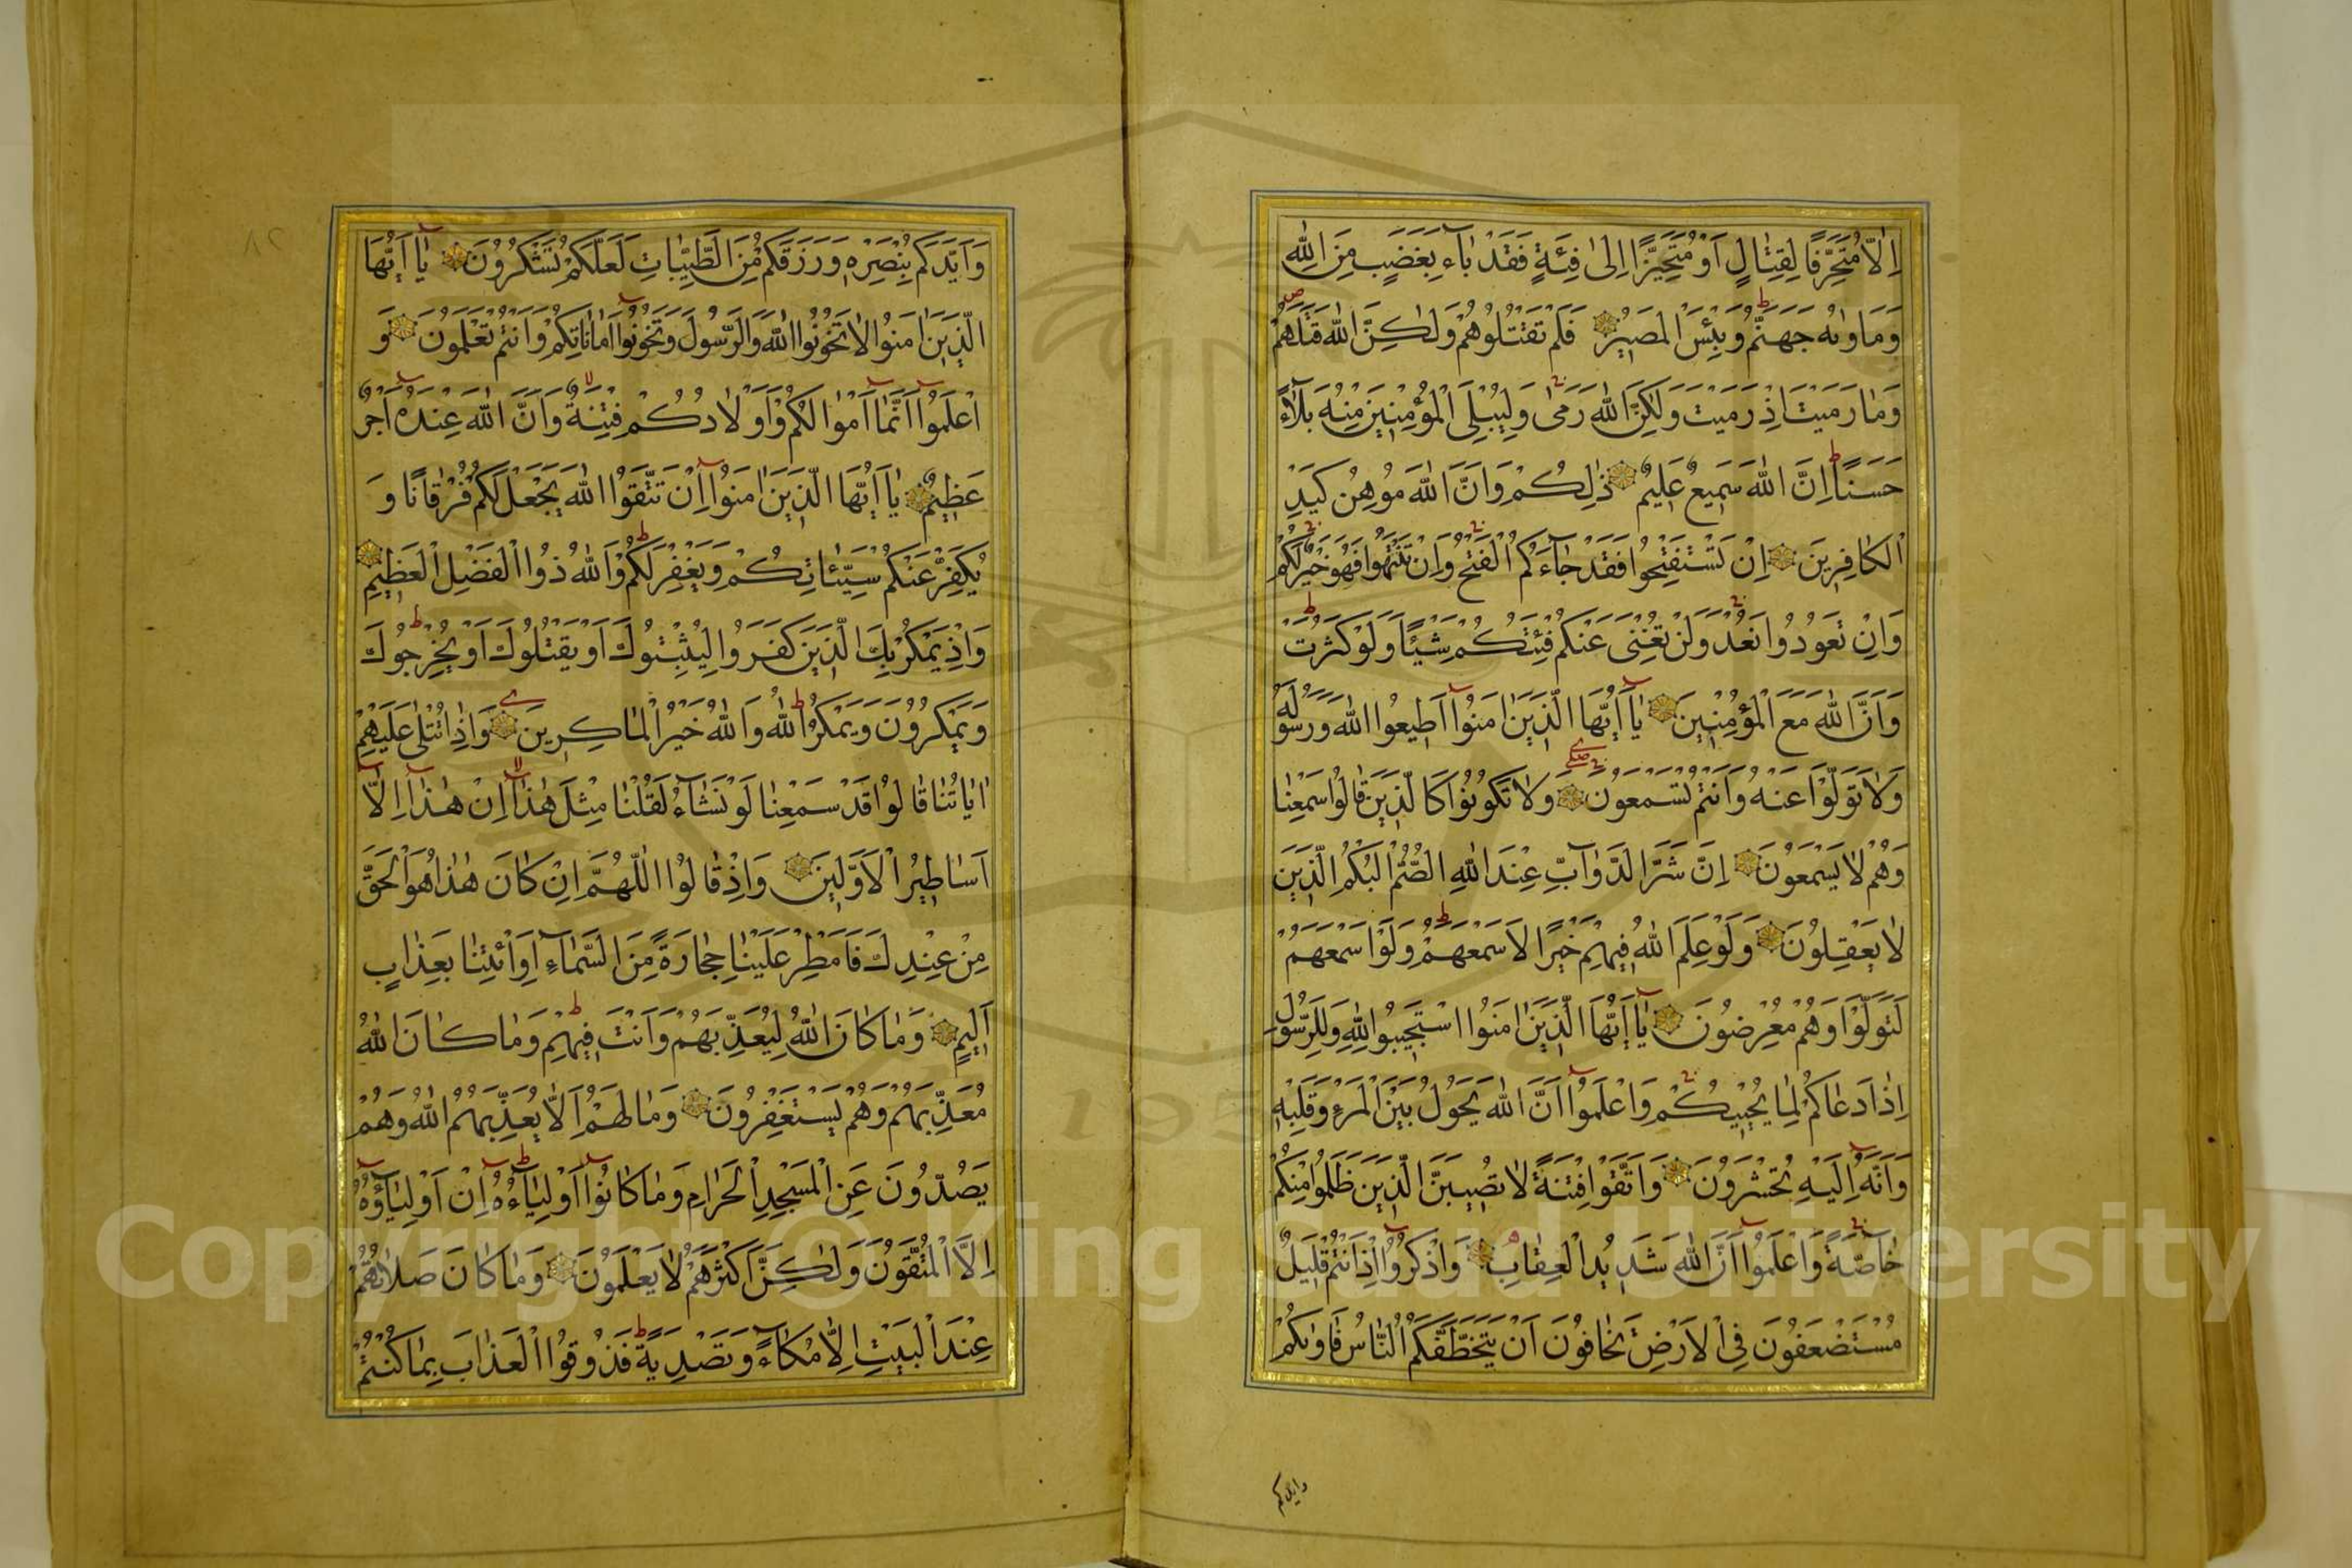 اِلَّا مُتَحَرِّفًا لِقِتَالٍ اَوْ مُتَحَيِّزًا اِلٰى فِئَةٍ فَقَدْ بَآءَ بِغَضَبٍ مِنَ اللّٰهِ
وَمَاْوٰيهُ جَهَنَّمُ وَبِئْسَ الْمَصِيرُ فَلَمْ تَقْتُلُوهُمْ وَلٰكِنَّ اللّٰهَ قَتَلَهُمْ
وَمَا رَمَيْتَ اِذْ رَمَيْتَ وَلٰكِنَّ اللّٰهَ رَمٰى وَلِيُبْلِىَ الْمُؤْمِنِينَ مِنْهُ بَلَآءً
حَسَنًا اِنَّ اللّٰهَ سَمِيعٌ عَلِيمٌ ذٰلِكُمْ وَاَنَّ اللّٰهَ مُوهِنُ كَيْدِ
الْكَافِرِينَ اِنْ تَسْتَفْتِحُوا فَقَدْ جَآءَكُمُ الْفَتْحُ وَاِنْ تَنْتَهُوا فَهُوَ خَيْرٌ لَكُمْ
وَاِنْ تَعُودُوا نَعُدْ وَلَنْ تُغْنِىَ عَنْكُمْ فِئَتُكُمْ شَيْئًا وَلَوْ كَثُرَتْ
وَاَنَّ اللّٰهَ مَعَ الْمُؤْمِنِينَ يَآ اَيُّهَا الَّذِينَ اٰمَنُوا اَطِيعُوا اللّٰهَ وَرَسُولَهُ
وَلَا تَوَلَّوْا عَنْهُ وَاَنْتُمْ تَسْمَعُونَ وَلَا تَكُونُوا كَالَّذِينَ قَالُوا سَمِعْنَا
وَهُمْ لَا يَسْمَعُونَ اِنَّ شَرَّ الدَّوَآبِّ عِنْدَ اللّٰهِ الصُّمُّ الْبُكْمُ الَّذِينَ
لَا يَعْقِلُونَ وَلَوْ عَلِمَ اللّٰهُ فِيهِمْ خَيْرًا لَاَسْمَعَهُمْ وَلَوْ اَسْمَعَهُمْ
لَتَوَلَّوْا وَهُمْ مُعْرِضُونَ يَآ اَيُّهَا الَّذِينَ اٰمَنُوا اسْتَجِيبُوا لِلّٰهِ وَلِلرَّسُولِ
اِذَا دَعَاكُمْ لِمَا يُحْيِيكُمْ وَاعْلَمُوا اَنَّ اللّٰهَ يَحُولُ بَيْنَ الْمَرْءِ وَقَلْبِهِ
وَاَنَّهُ اِلَيْهِ تُحْشَرُونَ وَاتَّقُوا فِتْنَةً لَا تُصِيبَنَّ الَّذِينَ ظَلَمُوا مِنْكُمْ
خَآصَّةً وَاعْلَمُوا اَنَّ اللّٰهَ شَدِيدُ الْعِقَابِ وَاذْكُرُوا اِذْ اَنْتُمْ قَلِيلٌ
مُسْتَضْعَفُونَ فِى الْاَرْضِ تَخَافُونَ اَنْ يَتَخَطَّفَكُمُ النَّاسُ فَاٰوٰيكُمْ
وايدكم
٨٢
وَاَيَّدَكُمْ بِنَصْرِهِ وَرَزَقَكُمْ مِنَ الطَّيِّبَاتِ لَعَلَّكُمْ تَشْكُرُونَ يَآ اَيُّهَا
الَّذِينَ اٰمَنُوا لَا تَخُونُوا اللّٰهَ وَالرَّسُولَ وَتَخُونُوا اَمَانَاتِكُمْ وَاَنْتُمْ تَعْلَمُونَ وَ
اعْلَمُوا اَنَّمَا اَمْوَالُكُمْ وَاَوْلَادُكُمْ فِتْنَةٌ وَاَنَّ اللّٰهَ عِنْدَهُ اَجْرٌ
عَظِيمٌ يَآ اَيُّهَا الَّذِينَ اٰمَنُوا اِنْ تَتَّقُوا اللّٰهَ يَجْعَلْ لَكُمْ فُرْقَانًا وَ
يُكَفِّرْ عَنْكُمْ سَيِّئَاتِكُمْ وَيَغْفِرْ لَكُمْ وَاللّٰهُ ذُوا الْفَضْلِ الْعَظِيمِ
وَاِذْ يَمْكُرُ بِكَ الَّذِينَ كَفَرُوا لِيُثْبِتُوكَ اَوْ يَقْتُلُوكَ اَوْ يُخْرِجُوكَ
وَيَمْكُرُونَ وَيَمْكُرُ اللّٰهُ وَاللّٰهُ خَيْرُ الْمَاكِرِينَ وَاِذَا تُتْلٰى عَلَيْهِمْ
اٰيَاتُنَا قَالُوا قَدْ سَمِعْنَا لَوْ نَشَآءُ لَقُلْنَا مِثْلَ هٰذَا اِنْ هٰذَا اِلَّا
اَسَاطِيرُ الْاَوَّلِينَ وَاِذْ قَالُوا اللّٰهُمَّ اِنْ كَانَ هٰذَا هُوَ الْحَقَّ
مِنْ عِنْدِكَ فَاَمْطِرْ عَلَيْنَا حِجَارَةً مِنَ السَّمَآءِ اَوِ ائْتِنَا بِعَذَابٍ
اَلِيمٍ وَمَا كَانَ اللّٰهُ لِيُعَذِّبَهُمْ وَاَنْتَ فِيهِمْ وَمَا كَانَ اللّٰهُ
مُعَذِّبَهُمْ وَهُمْ يَسْتَغْفِرُونَ وَمَا لَهُمْ اَلَّا يُعَذِّبَهُمُ اللّٰهُ وَهُمْ
يَصُدُّونَ عَنِ الْمَسْجِدِ الْحَرَامِ وَمَا كَانُوا اَوْلِيَآءَهُ اِنْ اَوْلِيَآؤُهُ
اِلَّا الْمُتَّقُونَ وَلٰكِنَّ اَكْثَرَهُمْ لَا يَعْلَمُونَ وَمَا كَانَ صَلَاتُهُمْ
عِنْدَ الْبَيْتِ اِلَّا مُكَآءً وَتَصْدِيَةً فَذُوقُوا الْعَذَابَ بِمَا كُنْتُمْ
Copyright © King Saud University